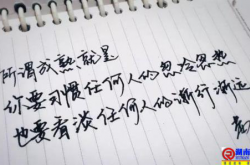 所谓成熟就是
你要习惯任何人的忽冷忽热
也要看淡任何人的渐行渐远